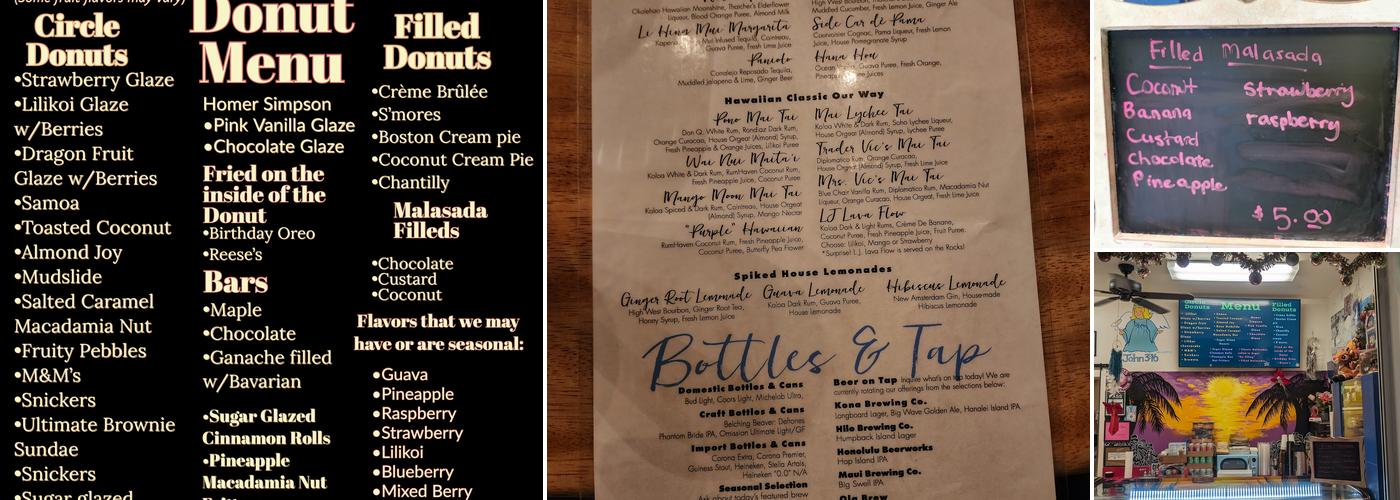 (Some fruit flavors may vary)
Circle
Donuts
•Strawberry Glaze
•Lilikoi Glaze
w/Berries
•Dragon Fruit
Glaze w/Berries
•Samoa
•Toasted Coconut
•Almond Joy
•Mudslide
•Salted Caramel
Macadamia Nut
•Fruity Pebbles
•M&M's
•Snickers
•Ultimate Brownie
Sundae
•Snickers
•Sugar glazed
Donut
Menu
Homer Simpson
•Pink Vanilla Glaze
•Chocolate Glaze
Fried on the
inside of the
Donut
•Birthday Oreo
•Reese's
Bars
•Maple
•Chocolate
•Ganache filled
w/Bavarian
•Sugar Glazed
Cinnamon Rolls
•Pineapple
Macadamia Nut
Filled
Donuts
•Crème Brûlée
•S'mores
•Boston Cream pie
•Coconut Cream Pie
•Chantilly
Malasada
Filleds
•Chocolate
•Custard
•Coconut
Flavors that we may
have or are seasonal:
•Guava
•Pineapple
•Raspberry
•Strawberry
•Lilikoi
•Blueberry
•Mixed Berry
Okolehao Hawaiian Moonshine, Thatcher's Elderflower
Liqueur, Blood Orange Puree, Almond Milk
Li Hing Mui Margarita
Mui Infused Tequila, Cointreau,
Guava Puree, Fresh Lime Juice
Paniolo
Corralejo Reposado Tequila,
Muddled Jalapeno & Lime, Ginger Beer
Muddled Cucumber, Fresh Lemon Juice, Ginger Ale
Side Car dé Pama
Courvoisier Cognac, Pama Liqueur, Fresh Lemon
Juice, House Pomegranate Syrup
Hana Hou
Ocean Guava Puree, Fresh Orange,
Pineapple Juices
Hawaiian Classic Our Way
Pono Mai Tai
Don Q. White Rum, Rondiaz Dark Rum,
Orange Curacao, House Orgeat (Almond) Syrup,
Fresh Pineapple & Orange Juices, Lilikoi Puree
Wai Nui Maita'i
Koloa White & Dark Rum, RumHaven Coconut Rum,
Fresh Pineapple Juice, Coconut Puree
Mango Moon Mai Tai
Koloa Spiced & Dark Rum, Cointreau, House Orgeat
(Almond) Syrup, Mango Nectar
"Purple" Hawaiian
RumHaven Coconut Rum, Fresh Pineapple Juice,
Coconut Puree, Butterfly Pea Flower
Mai Lychee Tai
Koloa White & Dark Rum, Soho Lychee Liqueur,
House Orgeat (Almond) Syrup, Lychee Puree
Trader Vic's Mai Tai
Diplomatico Rum, Orange Curacao,
House Orgeat (Almond) Syrup, Fresh Lime Juice
Mrs. Vic's Mai Tai
Blue Chair Vanilla Rum, Diplomatico Rum, Macadamia Nut
Liqueur, Orange Curacao, House Orgeat, Fresh Lime Juice
LJ Lava Flow
Koloa Dark & Light Rums, Crème De Banane,
Coconut Puree, Fresh Pineapple Juice, Fruit Puree.
Choose: Lilikoi, Mango or Strawberry
*Surprise! L.J. Lava Flow is served on the Rocks!
Spiked House Lemonades
Ginger Root Lemonade
High West Bourbon, Ginger Root Tea,
Honey Syrup, Fresh Lemon Juice
Guava Lemonade
Koloa Dark Rum, Guava Puree,
House Lemonade
Hibiscus Lemonade
New Amsterdam Gin, Housemade
Hibiscus Lemonade
Bottles & Tap
Domestic Bottles & Cans
Bud Light, Coors Light, Michelob Ultra,
Craft Bottles & Cans
Belching Beaver: Deftones
Phantom Bride IPA, Omission Ultimate Light/GF
Import Bottles & Cans
Corona Extra, Corona Premier,
Guiness Stout, Heineken, Stella Artois,
Heineken "0.0" N/A
Seasonal Selection
Ask about today's featured brew
Beer on Tap Inquire what's on tap today! We are
currently rotating our offerings from the selections below:
Kona Brewing Co.
Longboard Lager, Big Wave Golden Ale, Hanalei Island IPA
Hilo Brewing Co.
Humpback Island Lager
Honolulu Beerworks
Hop Island IPA
Maui Brewing Co.
Big Swell IPA
Ola Brew
Filled Malasada
Coconut
Banana
Custard
Chocolate
Pineapple
Strawberry
raspberry
$5.00
Menu
Filled
Donuts
John 3:16